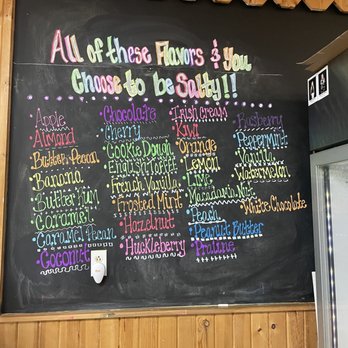 All of these Flavors & You
Choose to be Salty!!
• Apple
• Almond
• Butter Pecan
• Banana
• Butter Rum
• Caramel
• Caramel Pecan
• Coconut
• Chocolate
• Cherry
• Cookie Dough
• English Toffee
• French Vanilla
• Frosted Mint
• Hazelnut
• Huckleberry
• Irish Cream
• Kiwi
• Orange
• Lemon
• Lime
• Macadamia Nut
• Peach
• Peanut Butter
• Praline
• Raspberry
• Peppermint
• Vanilla
• Watermelon
• White Chocolate